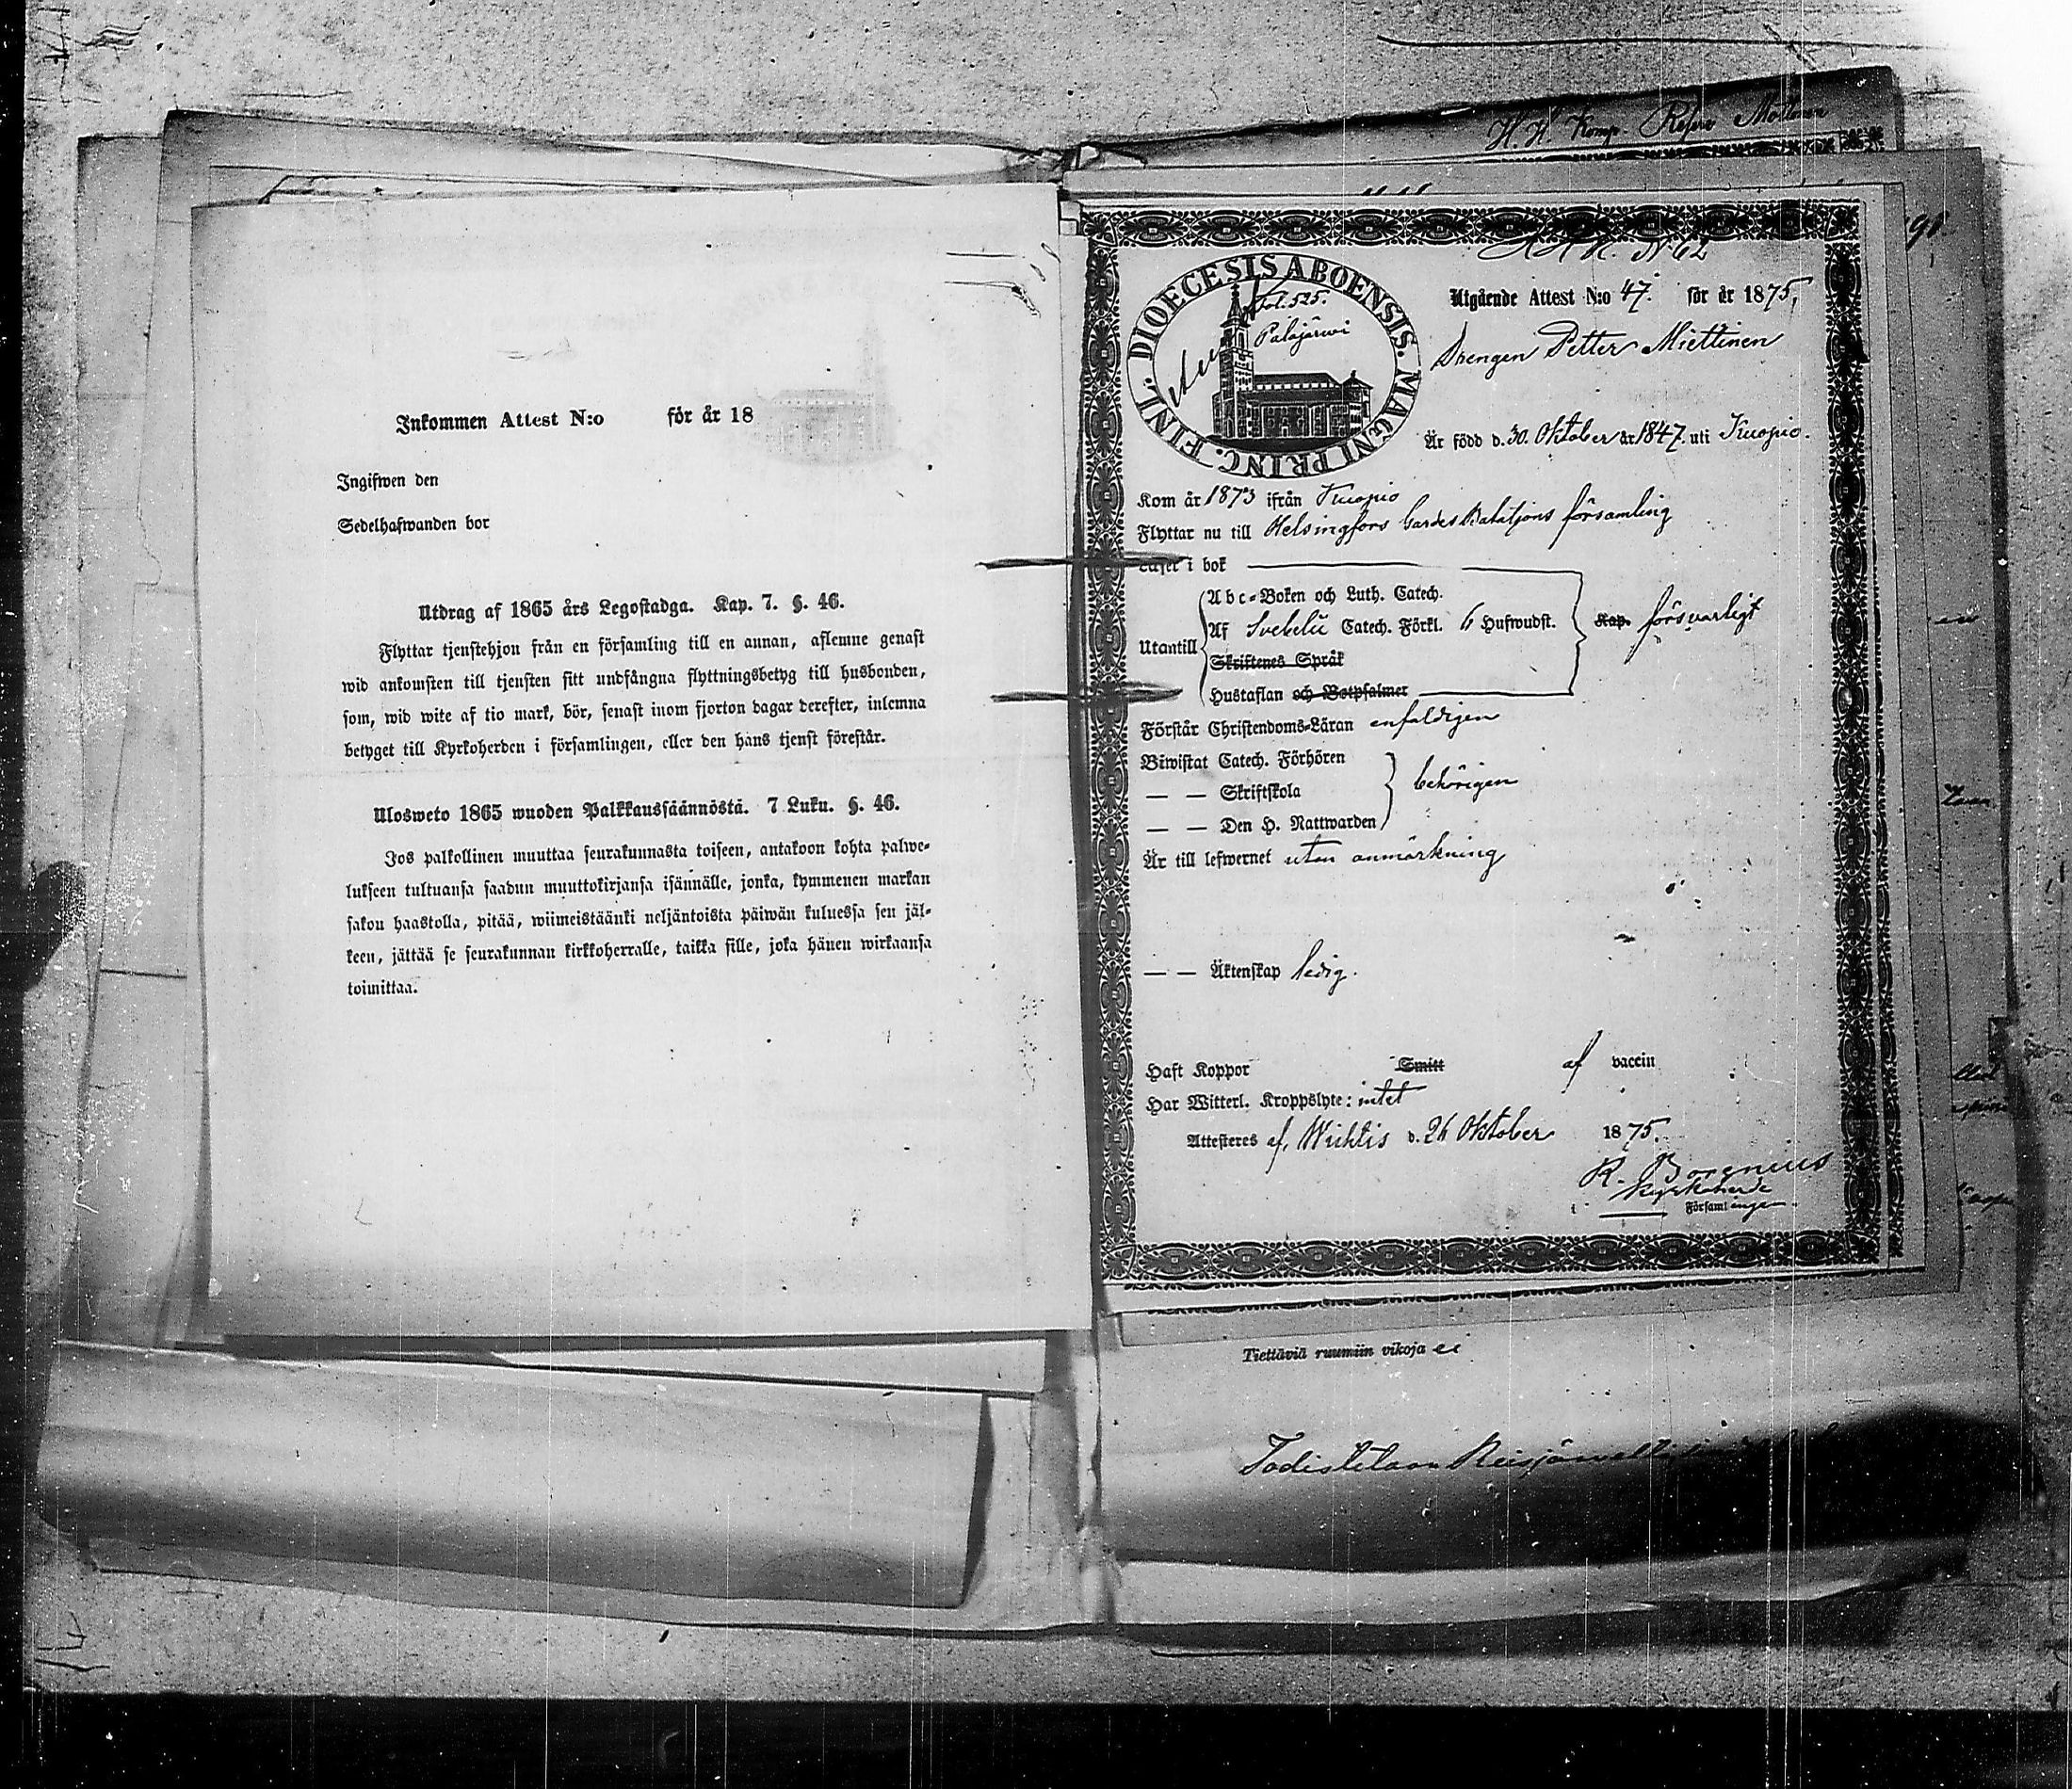 Inkommen Attest N:o för år 18
Ingifwen den
Sedelhafwanden bor
Utdrag af 1865 års Legostadga. Kap. 7. §. 46.
Flyttar tjenstehjon från en församling till en annan, aflemne genast
wid ankomsten till tjensten sitt undfångna flyttningsbetyg till husbonden,
som, wid wite af tio mark, bör, senast inom fjorton dagar derefter, inlemna
betyget till Kyrkoherden i församlingen, eller den hans tjenst förestår.
Ulosweto 1865 wuoden Palkkaussäännöstä. 7 Luku. §. 46.
Jos palkollinen muuttaa seurakunnasta toiseen, antakoon kohta palwe-
lukseen tultuansa saadun muuttokirjansa isännälle, jonka, kymmenen markan
sakon haastolla, pitää, wiimeistäänki neljäntoista päiwän kuluessa sen jäl-
keen, jättää se seurakunnan kirkkoherralle, taikka sille, joka hänen wirkaansa
toimittaa.
H. H. Komp.
N:62
DIOECESIS ABOENSIS. MAGNI PRINC. FINL.
Fol. 525.
Palajärwi
Utgående Attest N:o 47. för år 1875,
Drengen Petter Miettinen
Är född d. 30. Oktober år 1847. uti Kuopio.
Kom år 1873 ifrån Kuopio
Flyttar nu till Helsingfors Gardes Bataljons församling
Läser i bok
Abc-Boken och Luth. Catech.
Utantill Af Svebelii Catech. Förkl. 6 Hufwudst. Kap. försvarligt
Skriftenes Språk
Hustaflan och Botpsalmer
Förstår Christendoms-Läran enfaldigen
Biwistat Catech. Förhören
— — Skriftskola behörigen
— — Den H. Nattwarden
Är till lefwernet utan anmärkning
— — Äktenskap ledig.
Haft Koppor Smitt af vaccin
Har Witterl. Kroppslyte: intet
Attesteres af, Wichtis d. 26 Oktober 1875.
R. Borgenius
Kyrkoherde
i Församlingen
Tiettäviä ruumiin vikoja ei
Todistetaan